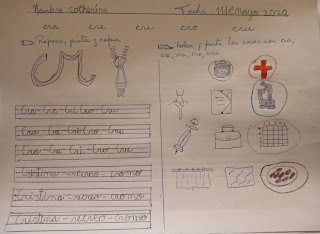 Nombre Catherine Fecha 11 de mayo 2020
cra cre cri cro cru
Repasa, pinta y copia
Rodea y pinta las cosas con cra,
cre, cri, cro, cru
Cra-Cre-Cri-Cro-Cru
Cra-Cre-Cri-Cro-Cru
Cra-Cre-Cri-Cro-Cru
Cristina-recreo-cromo
Cristina-recreo-cromo
Cristina-recreo-cromo